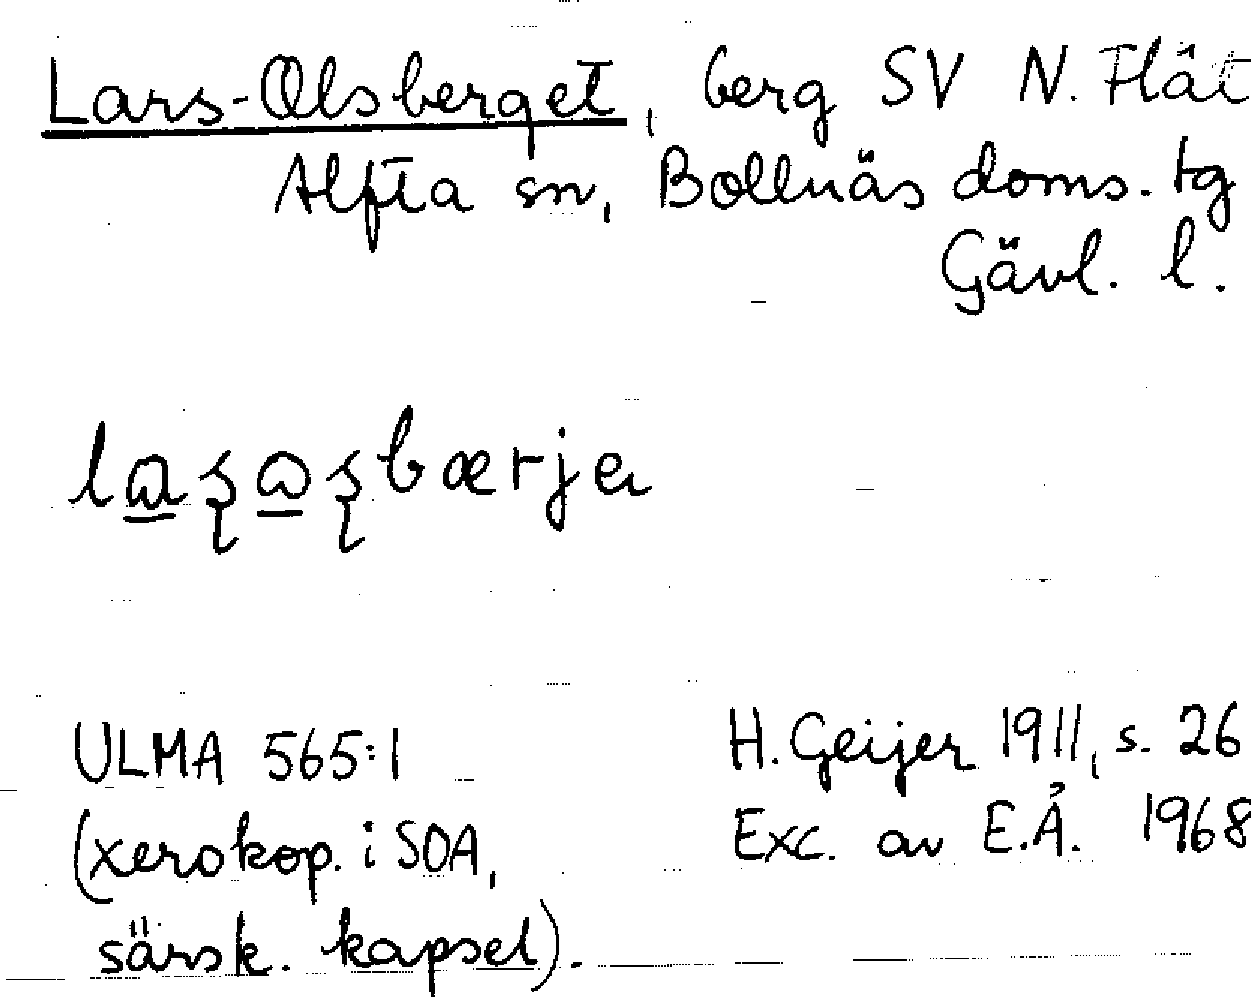 Lars-Olsberget, berg SV N. Flåt
Alfta sn, Bollnäs doms. tg
Gävl. l.
ULMA 565:1
(xerokop. i SOA,
särsk. kapsel).
H. Geijer 1911, s. 26
Exc. av E.Å. 1968